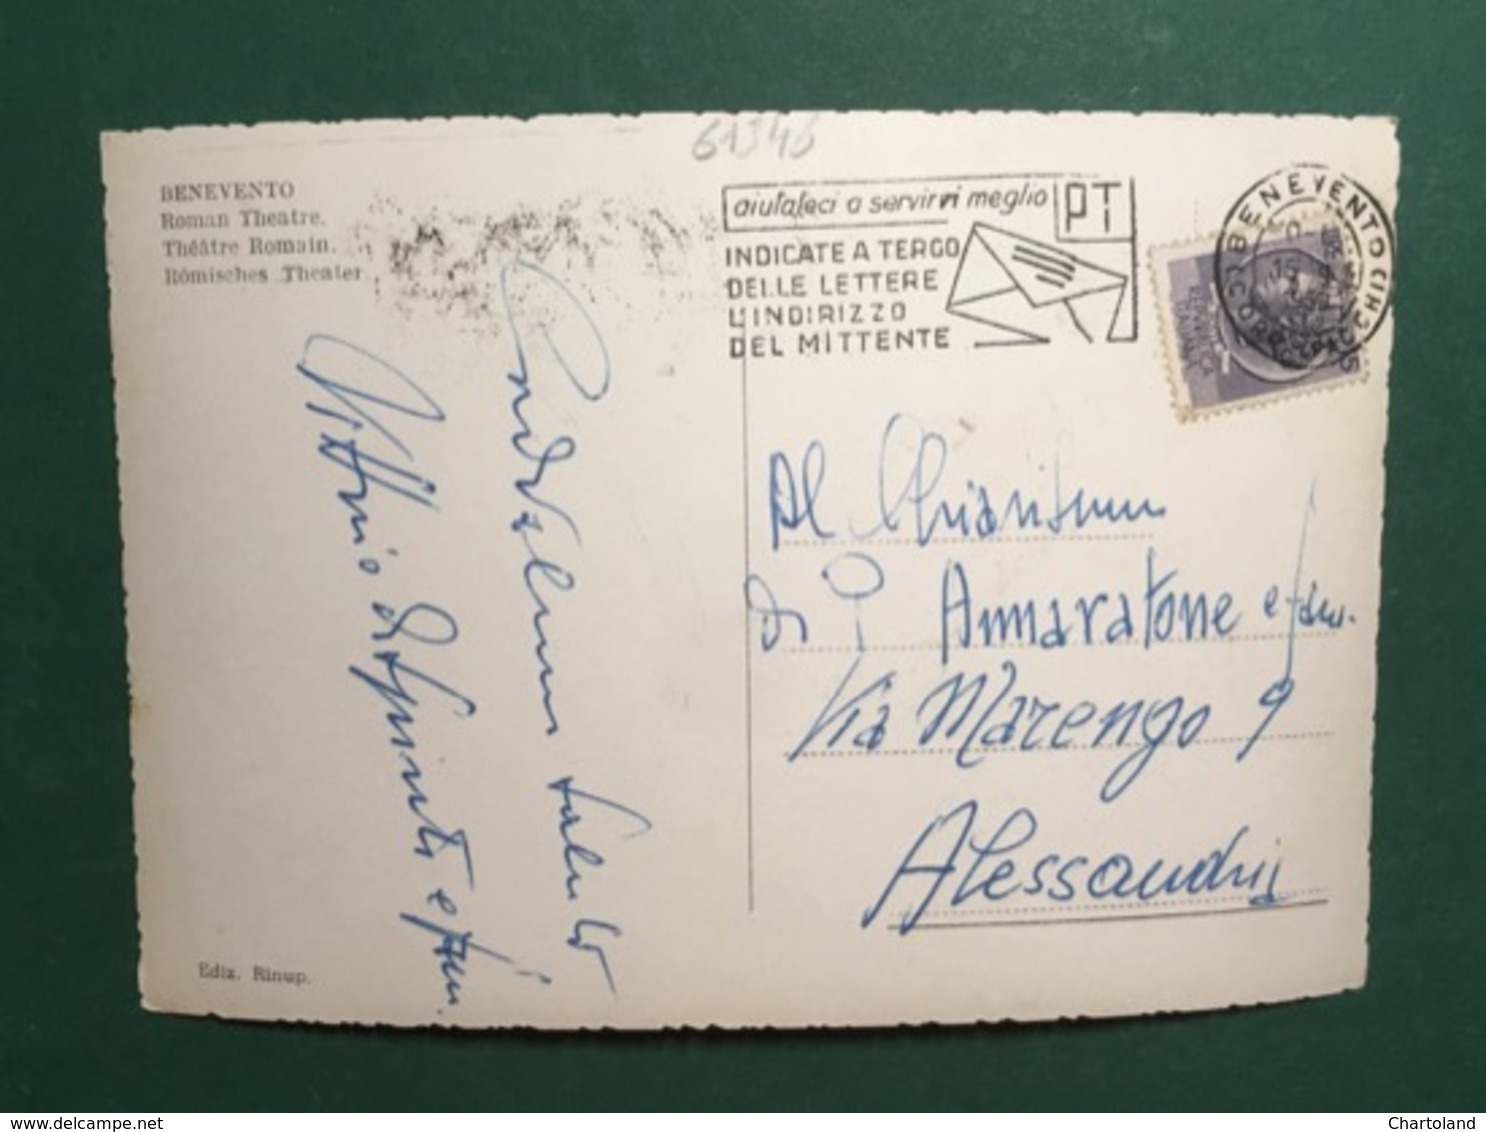 61346
BENEVENTO
Roman Theatre.
Théâtre Romain.
Römisches Theater
aiutateci a servirvi meglio
PT
INDICATE A TERGO
DELLE LETTERE
L'INDIRIZZO
DEL MITTENTE
BENEVENTO
CORR. PACCHI
REPUBBLICA
ITALIANA
Cordialmente saluti
Vittorio e fam.
Al
Annaratone e fam.
Via Marengo 9
Alessandria
Ediz. Rinup.
delcampe.net
Chartoland